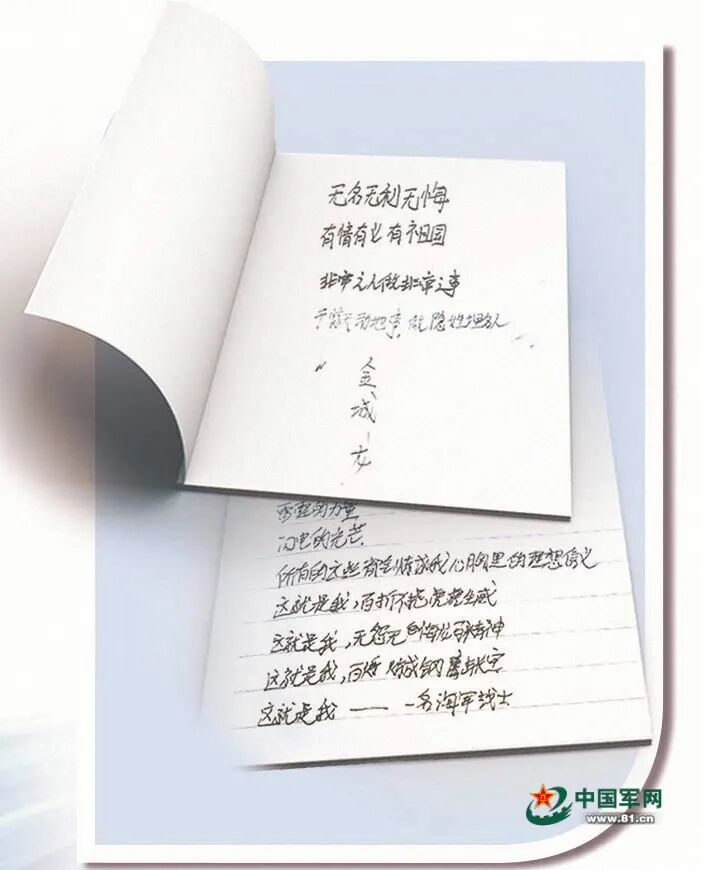 无名无利无悔
有情有义有祖国
非常之人做非常之事
干惊天动地事 做隐姓埋名人
雷霆的力量
闪电的光芒
所有的这些都会铸成我心胸里的理想信义
这就是我，百折不挠虎虎生威
这就是我，无怨无悔龙马精神
这就是我，百炼成钢
这就是我——一名海军战士
中国军网
www.81.cn